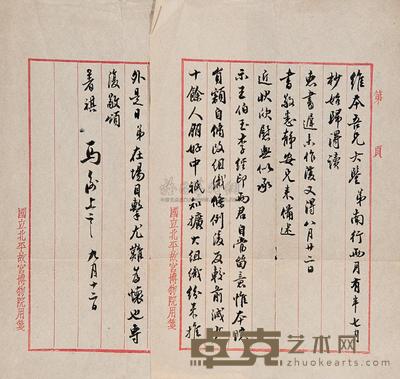 第 頁
維本吾兄大鑒弟南行兩月有半七月
杪始歸得讀
惠書遲未作復又得八月廿二日
書敬悉靜安兄来備述
近狀欣慰無似承
示王伯玉李經印兩君自當留意惟本院
自頒組織條例後反較前減少
十餘人朋好中祇知擴大組織紛来推
國立北平故宮博物院用箋
外是日弟在場目擊尤難為懷也專
復敬頌
著祺
馬衡上言 九月十二日
國立北平故宮博物院用箋
卓克艺术网
www.zhuokearts.com